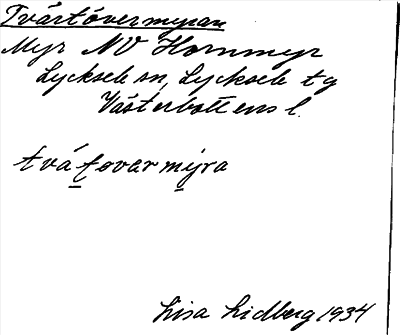 Tvärtövermyran
Myr NV Hornmyr
Lycksele sn, Lycksele tg
Västerbottens l.
tvátovarmýra
Lisa Lidberg 1934